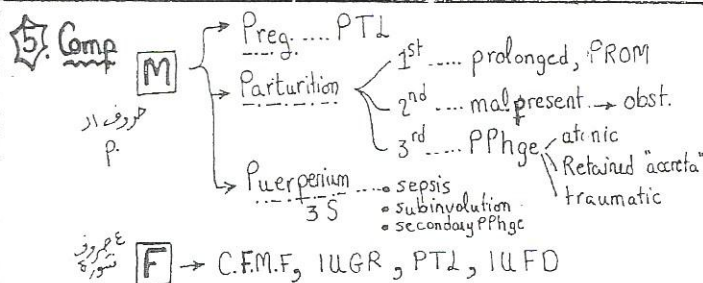 5. Comp
M
حروف ال
P.
→ Preg. .... PTL
→ Parturition
1st .... prolonged, PROM
2nd .... malpresent. → obst.
3rd .... PPhge
atonic
Retained "accreta"
traumatic
→ Puerperium .... • sepsis
3 S • subinvolution
• secondary PPhge
٤ حروف
F → C.F.M.F, IUGR, PTL, IUFD